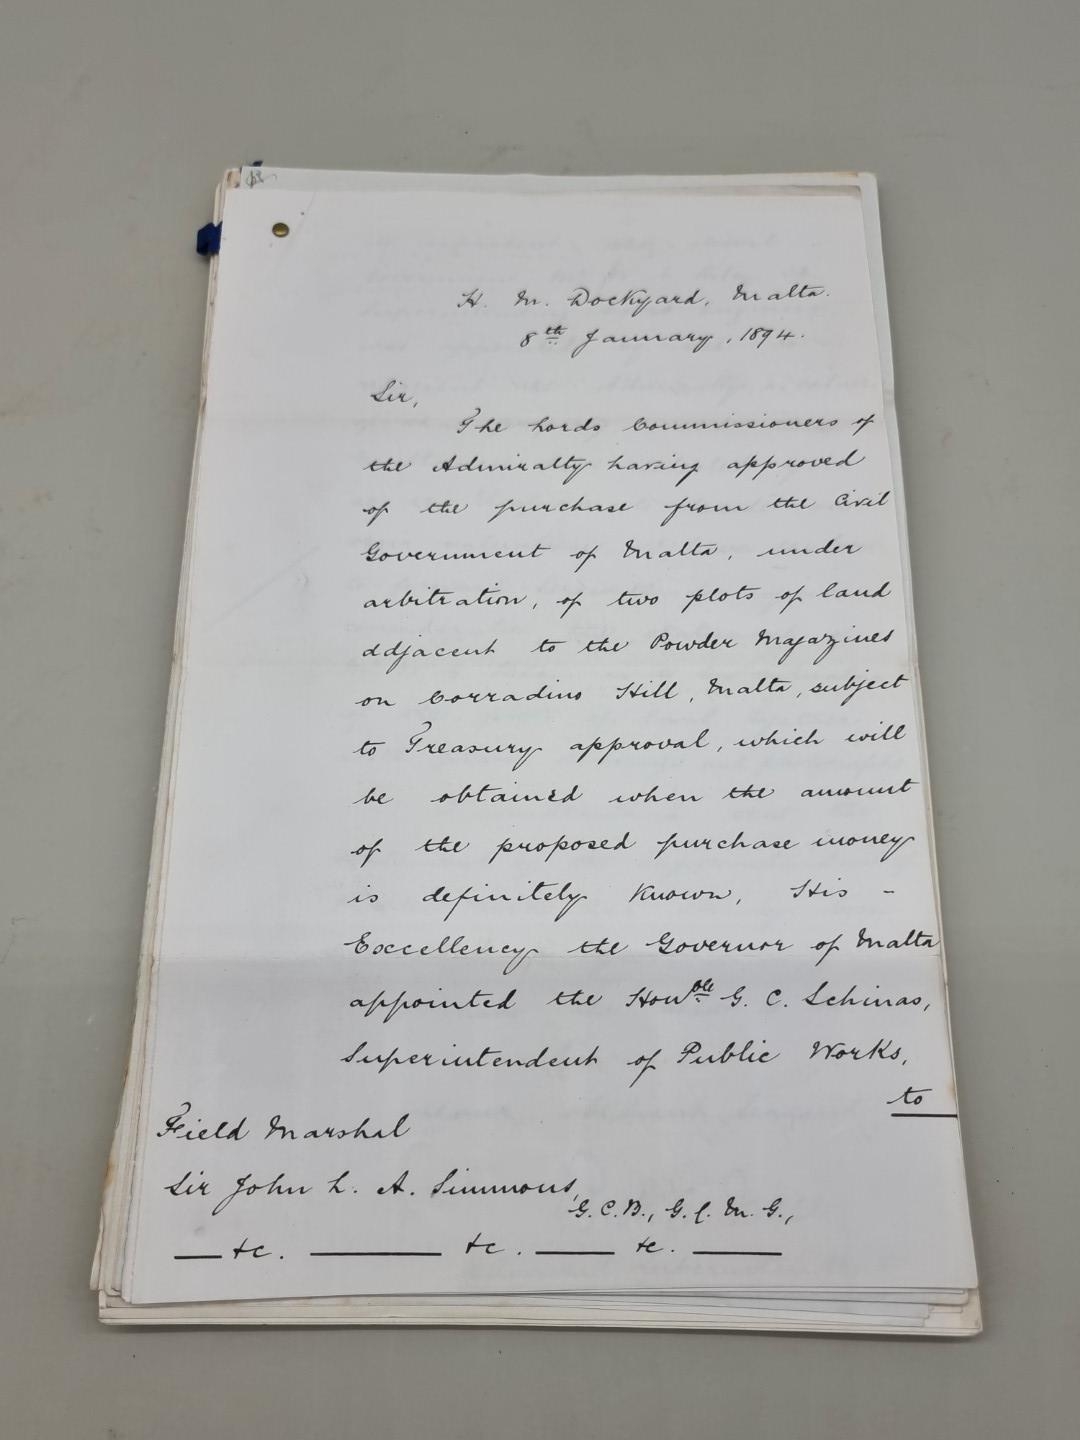 H. M. Dockyard, Malta.
8th January, 1894.
Sir,
The Lords Commissioners of
the Admiralty having approved
of the purchase from the Civil
Government of Malta, under
arbitration, of two plots of land
adjacent to the Powder Magazines
on Corradino Hill, Malta, subject
to Treasury approval, which will
be obtained when the amount
of the proposed purchase money
is definitely known, His -
Excellency the Governor of Malta
appointed the Honble G. C. Schinas,
Superintendent of Public Works,
to
Field Marshal
Sir John L. A. Simmons,
G.C.B., G.C.M.G.,
— &c. — &c. — &c. —